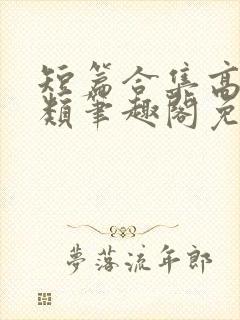 短篇合集高
类笔趣阁免
夢落流年郎